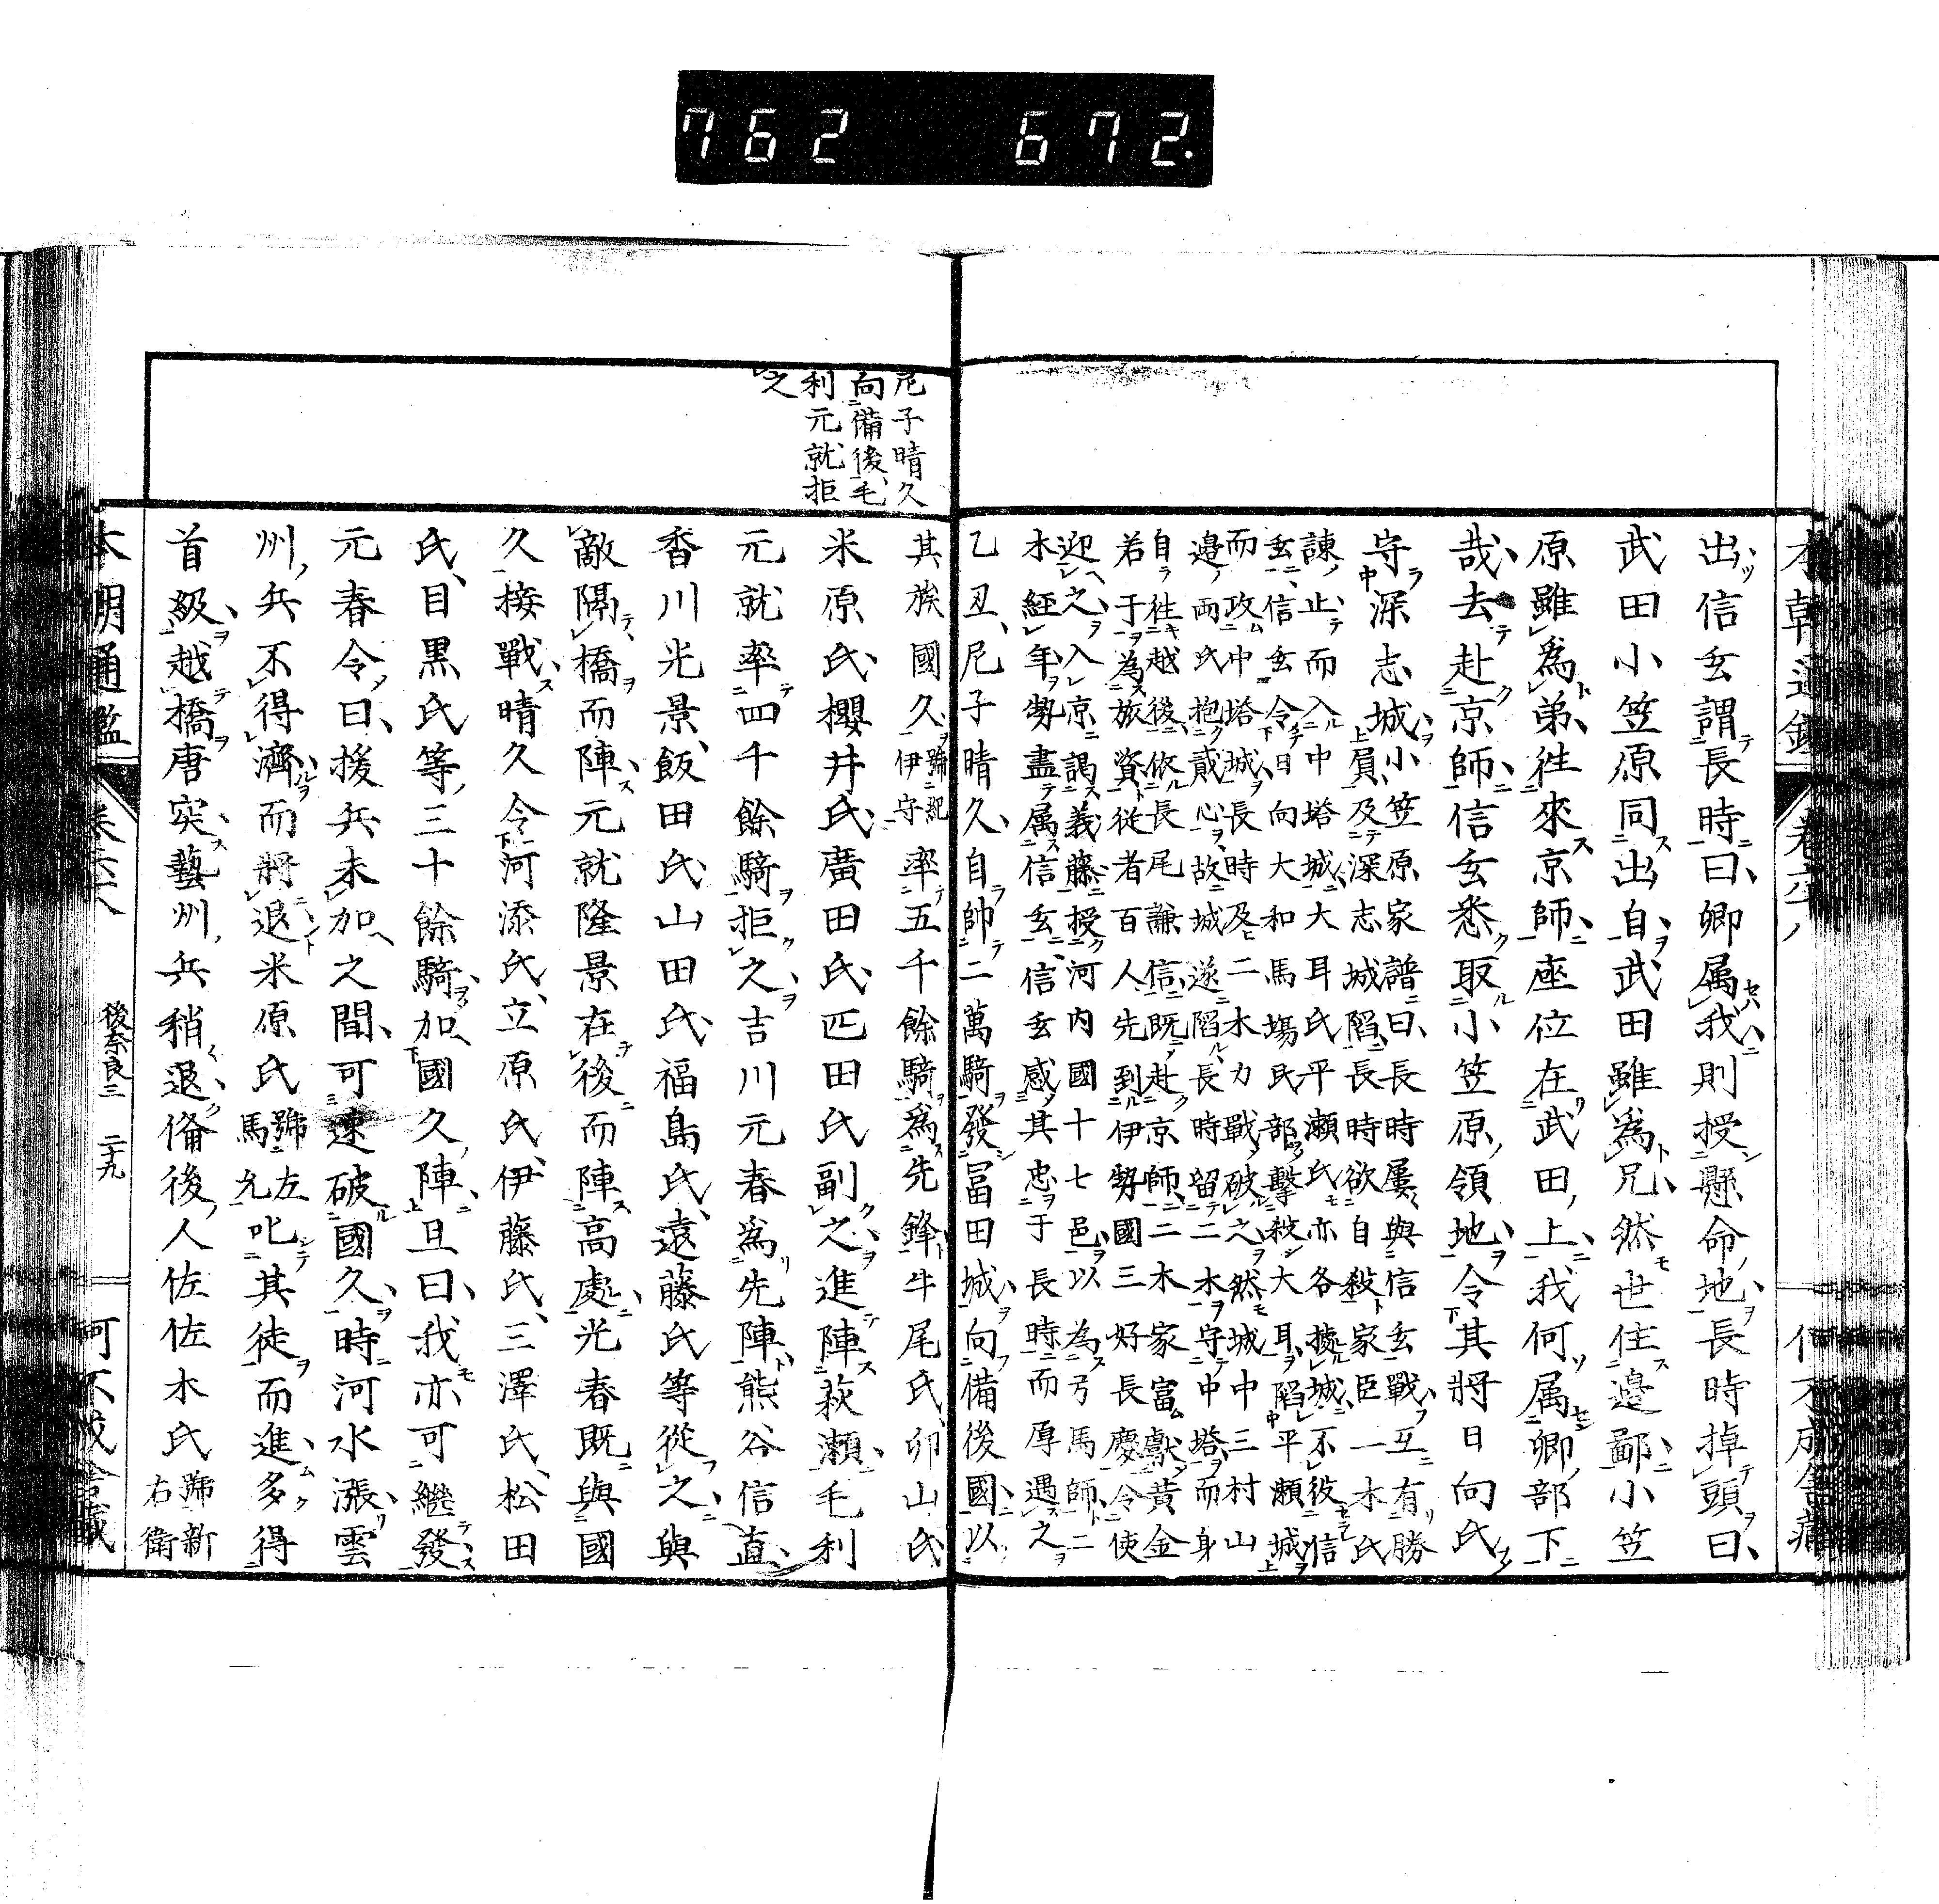 762 672.
出信玄謂長時曰、卿属我則授懸命地、長時掉頭曰、
武田小笠原同出自武田雖為兄、然世住邊鄙、小笠
原雖為弟、往來京師、座位在武田上、我何属卿部下
哉、去赴京師、信玄悉取小笠原領地、令其將日向氏
守深志城、
小笠原家譜曰、長時屢與信玄戰、互有勝
負、及深志城陷、長時欲自殺、家臣一木氏
諫止而入中塔城、大耳氏平瀬氏亦各據城、不彼信
玄、信玄令日向大和馬場民部擊殺大耳、陷平瀬城
而攻中塔城、長時及二木力戰、破之、然城中三村山
邉両氏抱貳心、故城遂陷、長時留二木守中塔、而身
自往越後、依長尾謙信、既赴京師、二木家富獻黄金
若于為旅資、從者百人先到伊勢國、三好長慶令使
迎之、入京謁義藤、授河内國十七邑、以為弓馬師、二
木經年勢盡属信玄、信玄感其忠于長時而厚遇之
乙丑、尼子晴久、自帥二萬騎發冨田城、向備後國、以
尼子晴久
向備後、毛
利元就拒
之
其族國久、號紀伊守率五千餘騎為先鋒、牛尾氏、卯山氏
米原氏、櫻井氏、廣田氏、匹田氏副之、進陣萩瀬、毛利
元就率四千餘騎拒之、吉川元春為先陣、熊谷信直、
香川光景、飯田氏、山田氏、福島氏、遠藤氏等從之、與
敵隔橋而陣、元就隆景在後而陣高處、光春既與國
久接戰、晴久令河添氏、立原氏、伊藤氏、三澤氏、松田
氏、目黒氏等、三十餘騎加國久陣、且曰、我亦可繼發、
元春令曰、援兵未加之間、可速破國久、時河水漲、雲
州兵不得濟而將退、米原氏號左馬允叱其徒而進、多得
首級、越橋唐突、藝州兵稍退、俻後人佐佐木氏號新右衛
後奈良三 二十九